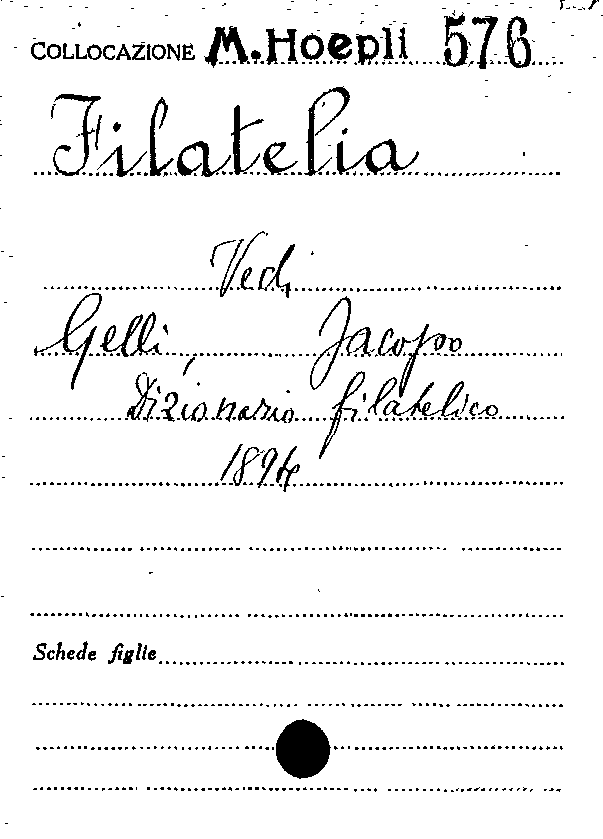 COLLOCAZIONE M.Hoepli 576
Filatelia
Vedi
Gelli, Jacopo
Dizionario filatelico
1894
Schede figlie